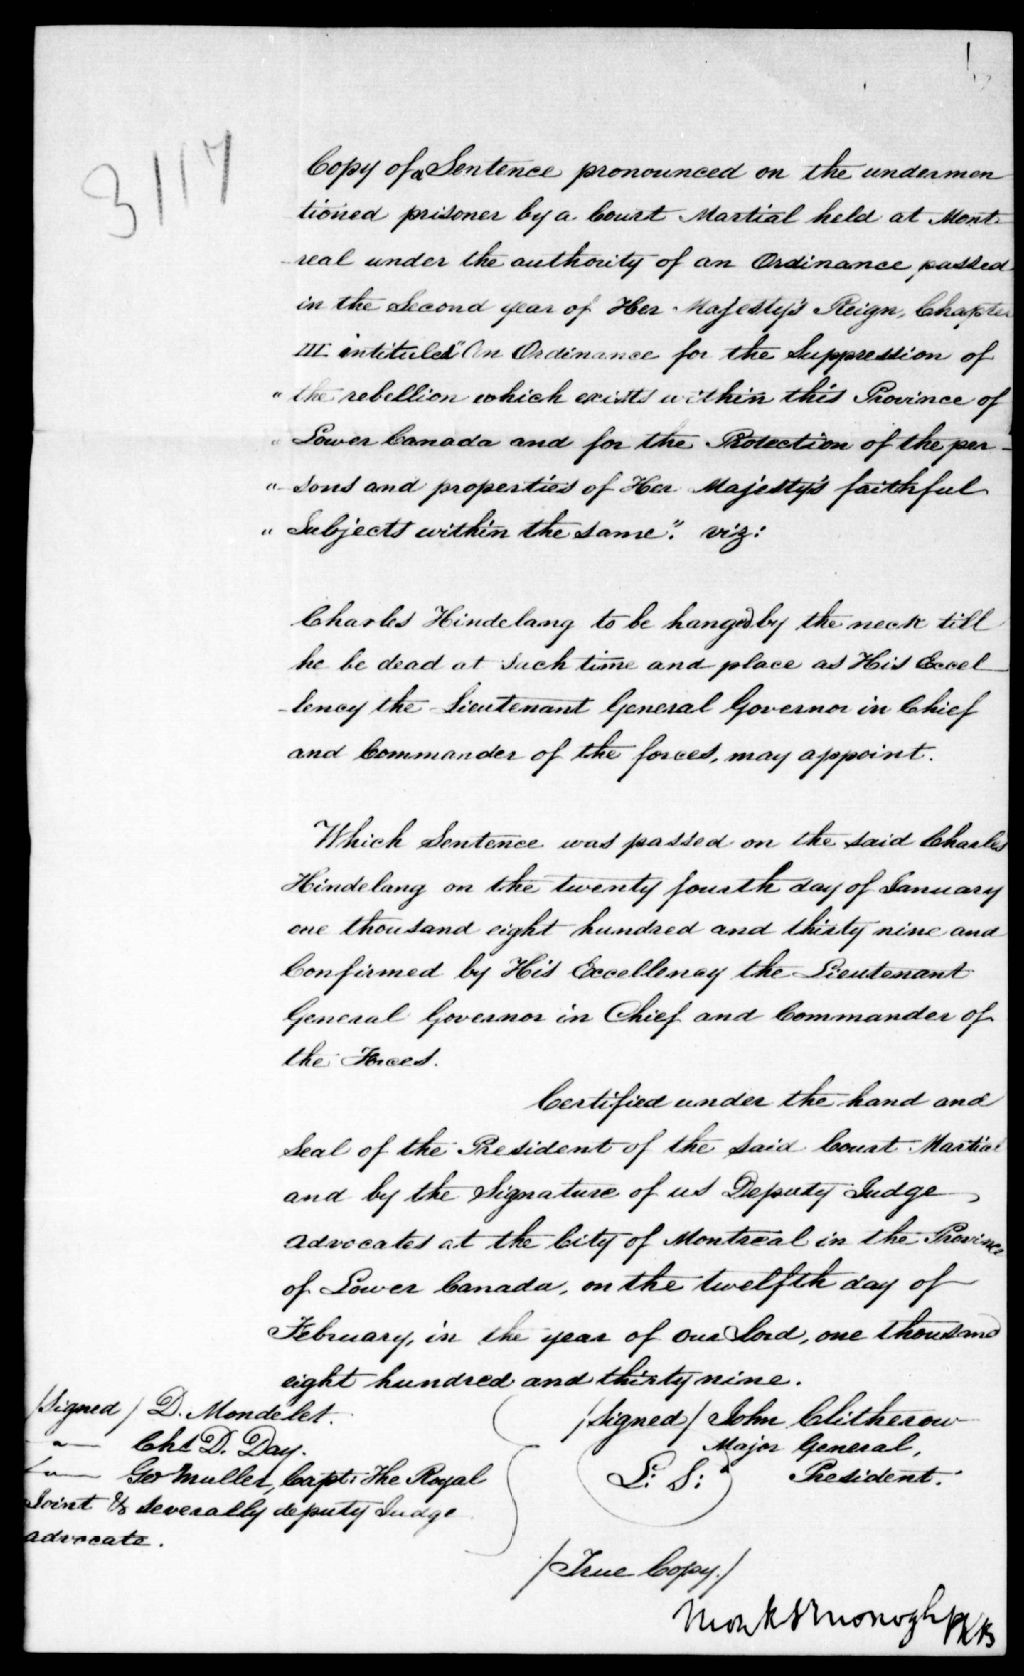 1
3117
Copy of a Sentence pronounced on the undermen
tioned prisoner by a Court Martial held at Mont-
real under the authority of an Ordinance, passed
in the Second year of Her Majesty's Reign, Chapter
III intituled "An Ordinance for the Suppression of
" the rebellion which exists within this Province of
" Lower Canada and for the Protection of the per-
" sons and properties of Her Majesty's faithful
" Subjects within the same." viz:
Charles Hindelang to be hanged by the neck till
he be dead at such time and place as His Excel
-lency the Lieutenant General Governor in Chief
and Commander of the forces, may appoint.
Which Sentence was passed on the said Charles
Hindelang on the twenty fourth day of January
one thousand eight hundred and thirty nine and
Confirmed by His Excellency the Lieutenant
General Governor in Chief and Commander of
the Forces.
Certified under the hand and
Seal of the President of the said Court Martial
and by the Signature of us Deputy Judge
advocates at the City of Montreal in the Province
of Lower Canada, on the twelfth day of
February, in the year of our Lord, one thousand
eight hundred and thirty nine.
/Signed/ D. Mondelet.
-"- Chs D. Day.
-"- Geo Muller, Capt: The Royal
Joint & severally deputy Judge
advocate.
/Signed/ John Clitherow
Major General,
L: S: President.
/True Copy./
Monk &